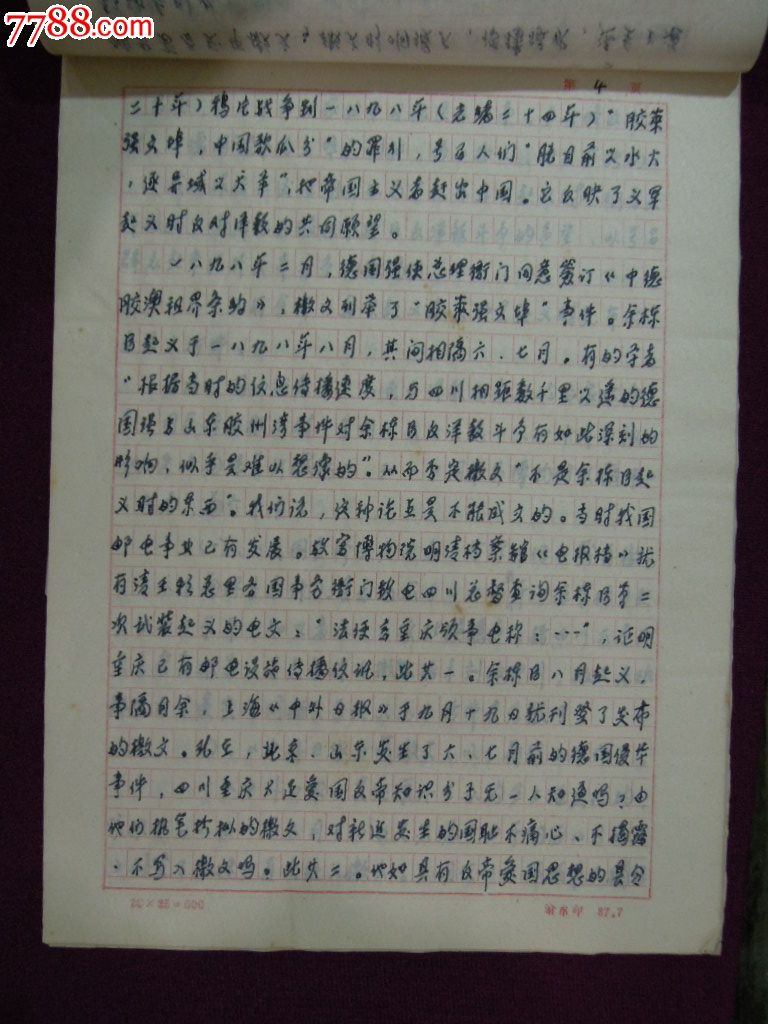 7788.com
第 4 页
二十年)鸦片战争到一八九八年(光绪二十四年)“胶莱
强立埠,中国欲瓜分”的罪行,号召人们“脂目前之水火
,逐异域之天羊”,把帝国主义者赶出中国。它反映了义军
起义时反对洋教的共同愿望。
一八九八年二月,德国强使总理衙门同意签订《中德
胶澳租界条约》,檄文列举了“胶莱强立埠”事件。余栋
臣起义于一八九八年八月,其间相隔六、七月。有的学者
“根据当时的信息传播速度,与四川相距数千里之遥的德
国强占山东胶州湾事件对余栋臣反洋教斗争有如此深刻的
影响,似乎是难以想像的”。从而否定檄文“不是余栋臣起
义时的东西”。我们说,这种论点是不能成立的。当时我国
邮电事业已有发展。故宫博物院明清档案馆《电报档》就
有清王朝总理各国事务衙门致电四川总督查询余栋臣第二
次武装起义的电文:“法使李重庆领事电称:……”,证明
重庆已有邮电设施传播信讯,此其一。余栋臣八月起义,
事隔月余,上海《中外日报》于九月十九日就刊登了发布
的檄文。况且,北京、山东发生了六、七月前的德国侵华
事件,四川重庆大足爱国反帝知识分子无一人知道吗?由
他们执笔抄拟的檄文,对新近发生的国耻不痛心、不揭露
、不写入檄文吗。此其二。他如具有反帝爱国思想的县令
20×25=500
渝永印 87.7